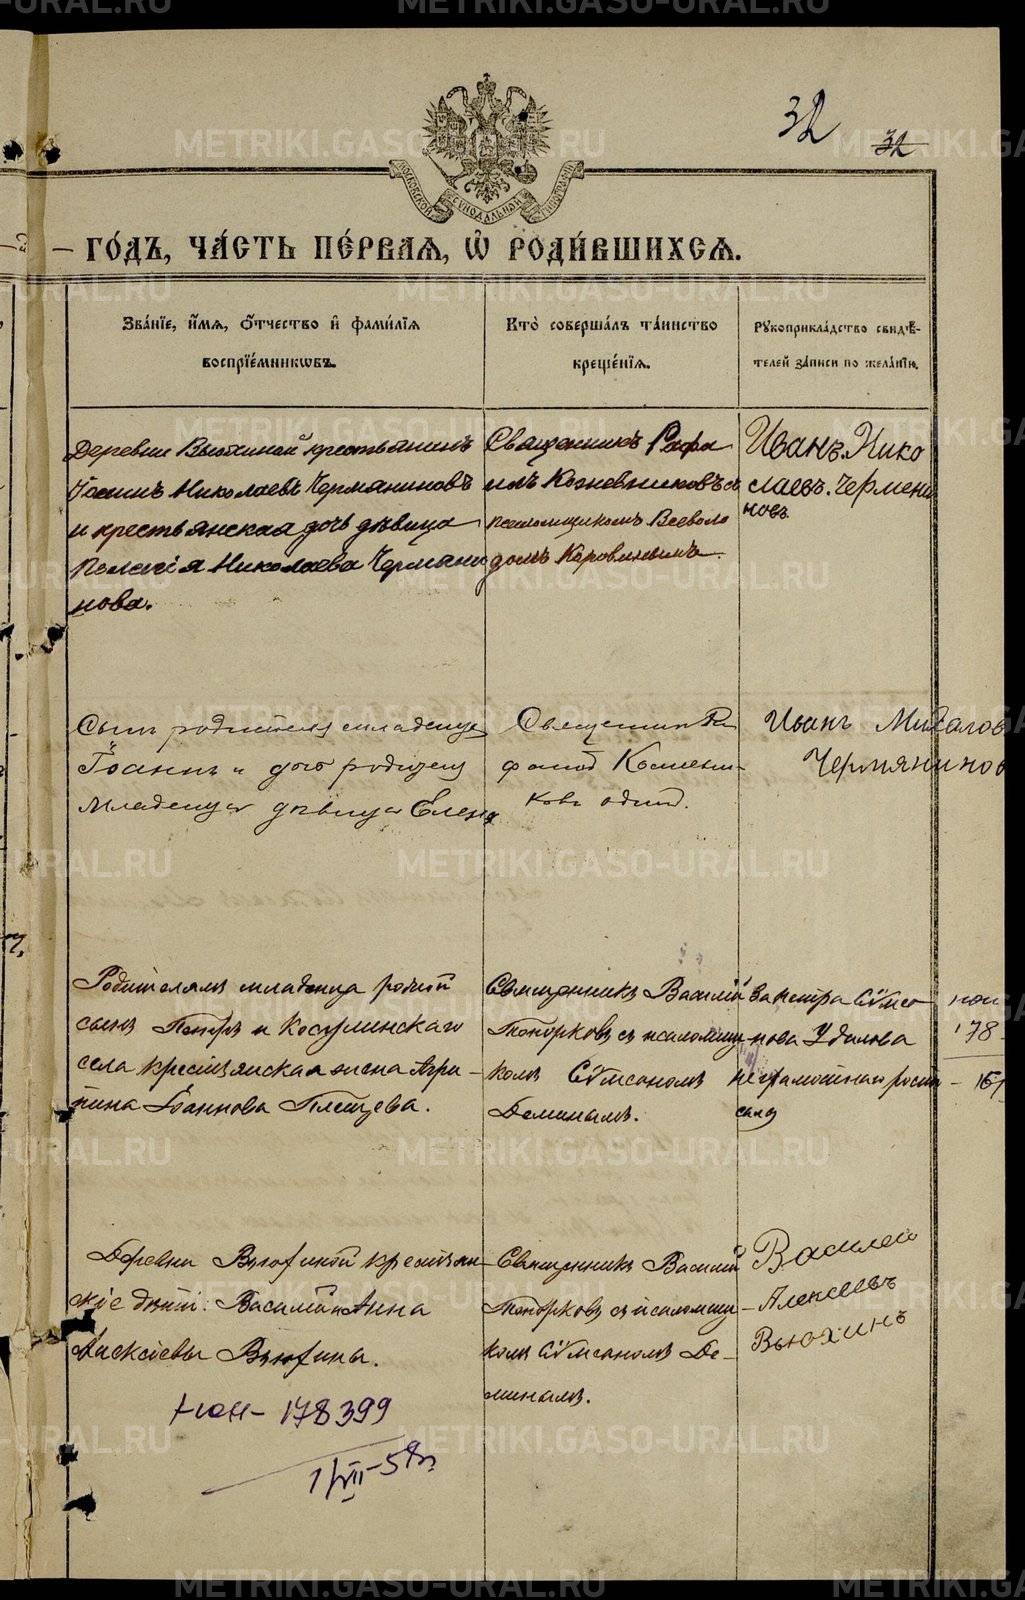 32
32
МОСКОВСКОЙ СѴНОДАЛЬНОЙ ТИПОГРАФІИ
— ГО́ДЪ, ЧА́СТЬ ПЕ́РВАЯ, Ѽ РОДИ́ВШИХСЯ.
Зва́нїе, и҆́мѧ, ѻ҆́тчество и҆ фами́лїѧ
воспрїе́мникѡвъ.
Кто̀ соверша́лъ та́инство
креще́нїѧ.
Рукоприкла́дство свидѣ́-
телей за́писи по жела́нїю.
Деревни Вьюхиной крестьянинъ
Іоаннъ Николаевъ Чермяниновъ
и крестьянская дочь дѣвица
Пелагія Николаева Чермяни
нова.
Священникъ Рафа
илъ Кожевниковъ съ
псаломщикомъ Всеволо
домъ
Иванъ. Нико
лаевъ. Чермени
новъ.
Сынъ родителя младенца
Іоаннъ и дочь родителя
младенца дѣвица Елена
Священник Ра
фаил Кожевни-
ковъ один.
Иванъ Михалов
Чермянинов
Родителямъ младенца родной
сынъ Петръ и Косулинскаго
села крестьянская жена Агри-
пина Іоаннова Плетцева.
Священникъ Василій
Топорковъ съ псаломщи
комъ Сѵмеономъ
Деминымъ.
За Петра Сѵмео
нова Удилова
неграмотнаго роспи
сался
178
Деревни Вьюхиной крестьян-
скіе дѣти: Василій и Анна
Алексѣевы Вьюхины.
Священникъ Василій
Топорковъ съ псаломщи-
комъ Сѵмеономъ Де-
минымъ.
Василей
Алексеевъ
Вьюхинъ
178399
1/VII-58г.
METRIKI.GASO-URAL.RU